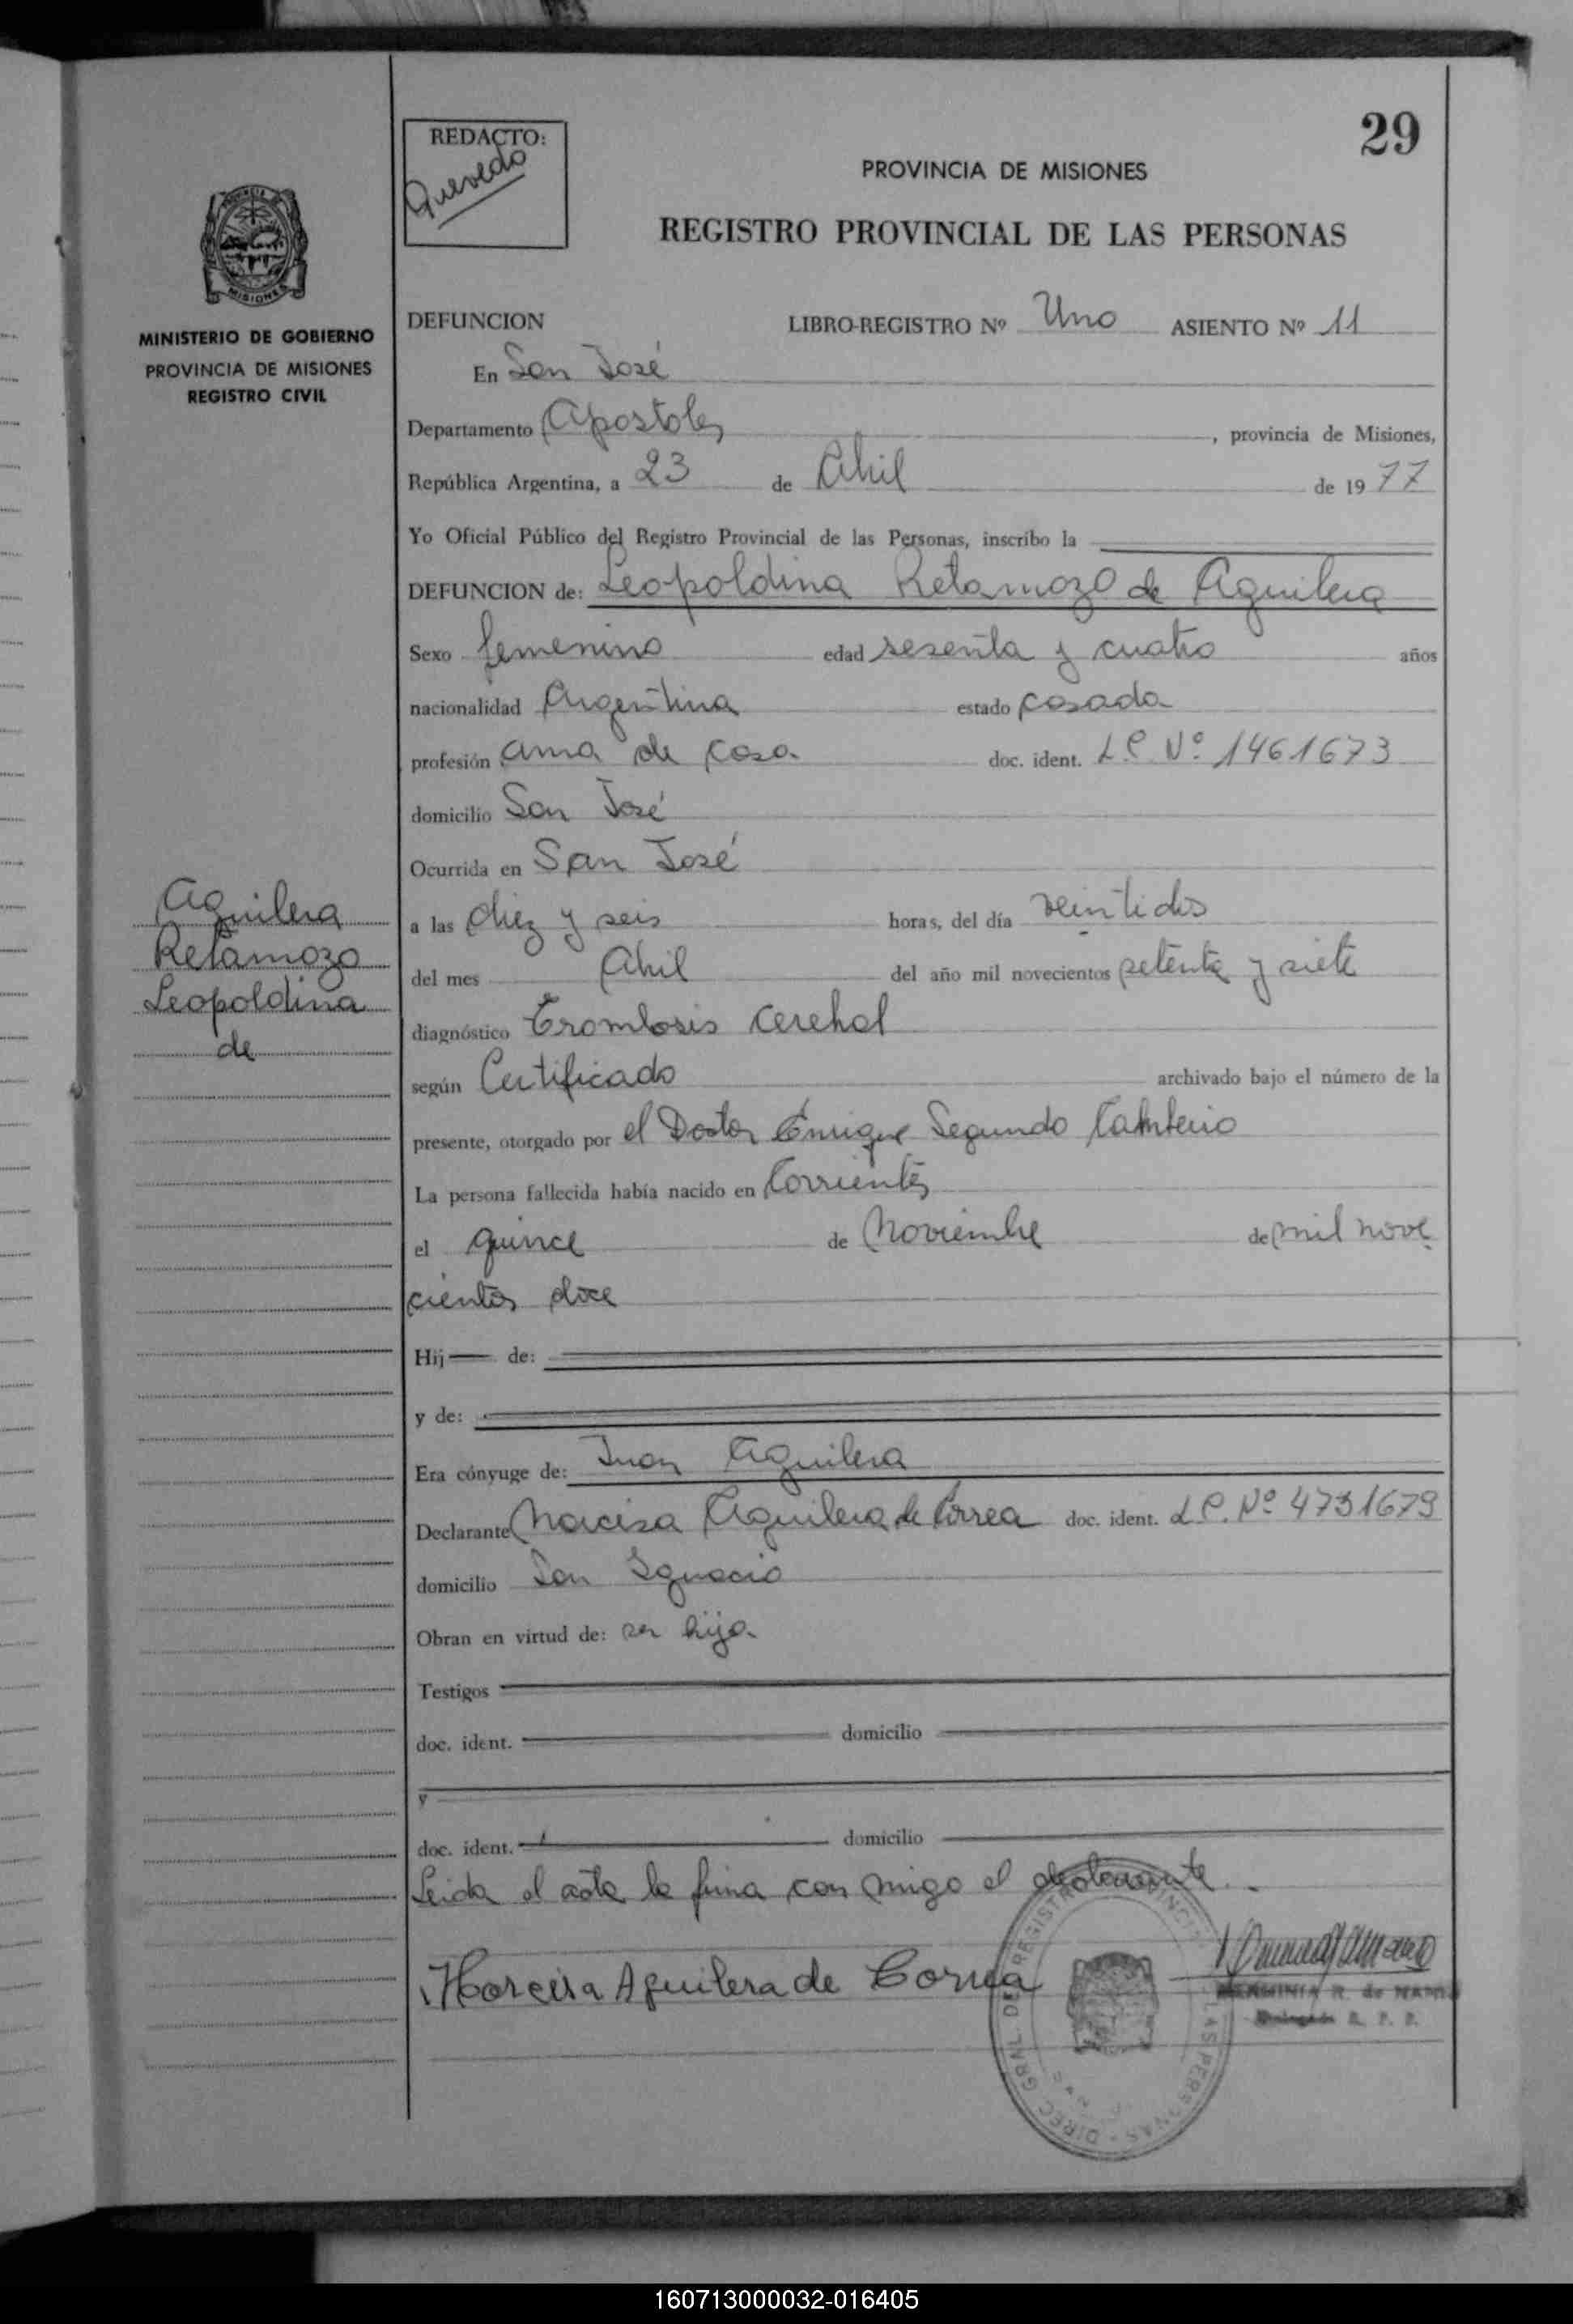 29
REDACTO:
Quevedo
PROVINCIA DE MISIONES
REGISTRO PROVINCIAL DE LAS PERSONAS
MISIONES
MINISTERIO DE GOBIERNO
PROVINCIA DE MISIONES
REGISTRO CIVIL
DEFUNCION LIBRO-REGISTRO Nº Uno ASIENTO Nº 11
En San José
Departamento Apostoles, provincia de Misiones,
República Argentina, a 23 de Abril de 1977
Yo Oficial Público del Registro Provincial de las Personas, inscribo la
DEFUNCION de: Leopoldina Retamozo de Aguilera
Sexo femenino edad sesenta y cuatro años
nacionalidad Argentina estado casada
profesión ama de casa doc. ident. L.C. Nº 1461673
domicilio San José
Ocurrida en San José
Aguilera
Retamozo
Leopoldina
de
a las diez y seis horas, del día veintidos
del mes Abril del año mil novecientos setenta y siete
diagnóstico Trombosis cerebral
según Certificado archivado bajo el número de la
presente, otorgado por el Doctor Enrique Segundo
La persona fallecida había nacido en Corrientes
el quince de Noviembre de mil nove
cientos doce
Hij de:
y de:
Era cónyuge de: Juan Aguilera
Declarante Narcisa Aguilera de Correa doc. ident. L.C. Nº 4731679
domicilio San Ignacio
Obran en virtud de: ser hija
Testigos
doc. ident. domicilio
y
doc. ident. domicilio
Leida el acta la firma con migo el declarante
Narcisa Aguilera de Correa
R. de
R. P. P.
DIREC. GRAL. DEL REGISTRO PROVINCIAL LAS PERSONAS
160713000032-016405